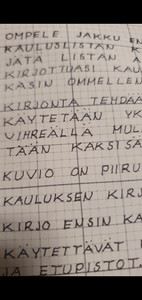 OMPELE JAKKU EN
KAULUSLISTAN K
JÄTÄ LISTAN A
KIRJOTTUASI KAU
KÄSIN OMMELLEN
KIRJONTA TEHDÄÄ
KÄYTETÄÄN YK
VIHREÄLLÄ MUL
TÄÄN KAKSISÄ
KUVIO ON PIIRU
KAULUKSEN KIRJ
KIRJO ENSIN KA
KÄYTETTÄVÄT L
JA ETUPISTOT.